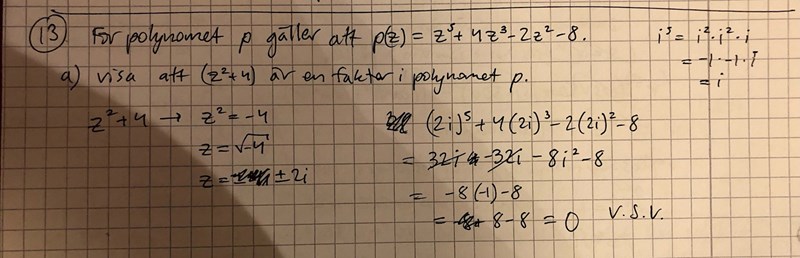 (13) För polynomet p gäller att p(z) = z⁵ + 4z³ - 2z² - 8.
a) visa att (z²+4) är en faktor i polynomet p.
z²+4 → z² = -4
z = √-4
z = ± 2i
(2i)⁵ + 4(2i)³ - 2(2i)² - 8
= 32i + -32i - 8i² - 8
= -8(-1) - 8
= 8 - 8 = 0 V.S.V.
i⁵ = i²·i²·i
= -1·-1·i
= i